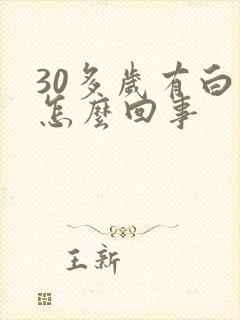 30多歲有白
怎麼回事
王新